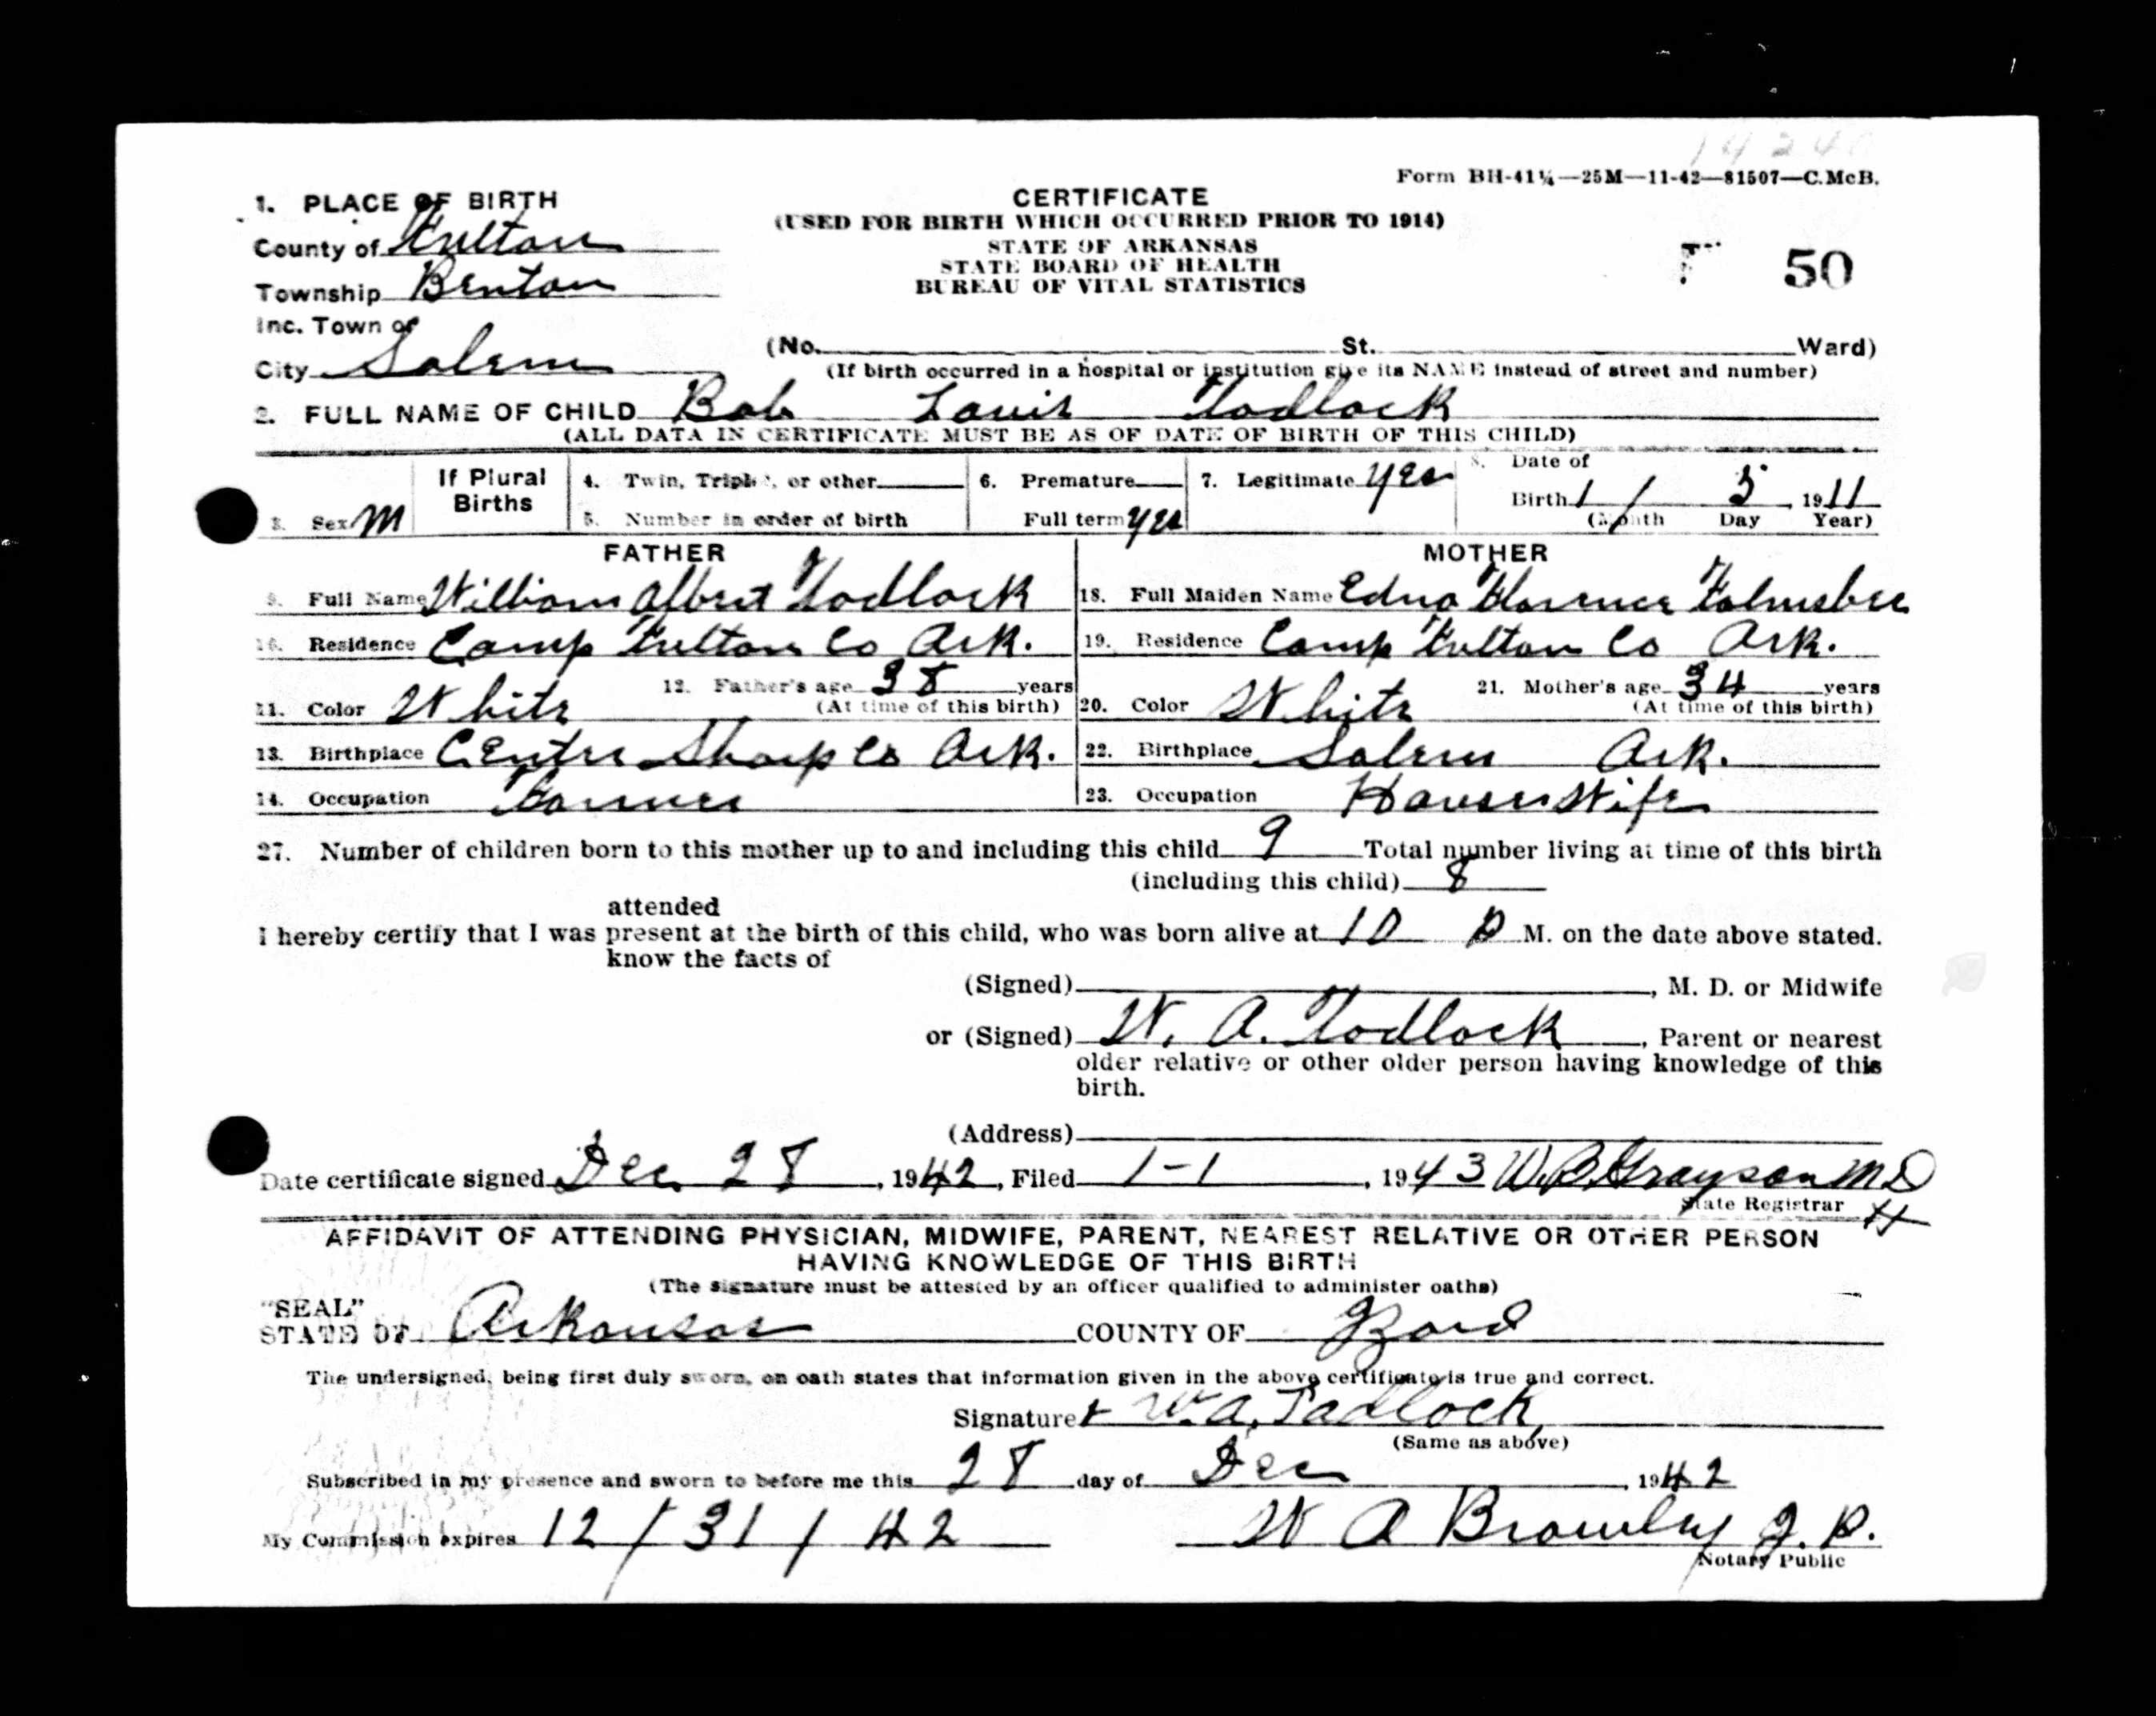 14240
Form BH-41¼—25M—11-42—81507—C.McB.
1. PLACE OF BIRTH
County of Fulton
Township Benton
Inc. Town or
City Salem
CERTIFICATE
(USED FOR BIRTH WHICH OCCURRED PRIOR TO 1914)
STATE OF ARKANSAS
STATE BOARD OF HEALTH
BUREAU OF VITAL STATISTICS
50
(No. St. Ward)
(If birth occurred in a hospital or institution give its NAME instead of street and number)
2. FULL NAME OF CHILD Bob Louis Tadlock
(ALL DATA IN CERTIFICATE MUST BE AS OF DATE OF BIRTH OF THIS CHILD)
3. Sex M
If Plural Births
4. Twin, Triplet, or other
5. Number in order of birth
6. Premature
Full term yes
7. Legitimate yes
8. Date of
Birth 1 / 5, 1911
(Month Day Year)
FATHER
9. Full Name William Albert Tadlock
10. Residence Camp Fulton Co Ark.
11. Color White
12. Father's age 38 years
(At time of this birth)
13. Birthplace Center Sharp Co Ark.
14. Occupation Farmer
MOTHER
18. Full Maiden Name Edna Florence Fulmsbee
19. Residence Camp Fulton Co Ark.
20. Color White
21. Mother's age 34 years
(At time of this birth)
22. Birthplace Salem Ark.
23. Occupation House Wife
27. Number of children born to this mother up to and including this child 9 Total number living at time of this birth
(including this child) 8
attended
I hereby certify that I was present at the birth of this child, who was born alive at 10 P M. on the date above stated.
know the facts of
(Signed) , M. D. or Midwife
or (Signed) W. A. Tadlock, Parent or nearest
older relative or other older person having knowledge of this
birth.
(Address)
Date certificate signed Dec 28, 1942, Filed 1-1, 1943 W.B. Grayson M D
State Registrar H
AFFIDAVIT OF ATTENDING PHYSICIAN, MIDWIFE, PARENT, NEAREST RELATIVE OR OTHER PERSON
HAVING KNOWLEDGE OF THIS BIRTH
(The signature must be attested by an officer qualified to administer oaths)
"SEAL"
STATE OF Arkansas COUNTY OF Izard
The undersigned, being first duly sworn, on oath states that information given in the above certificate is true and correct.
Signature Wm A. Tadlock
(Same as above)
Subscribed in my presence and sworn to before me this 28 day of Dec, 1942
My Commission expires 12/31/42 W A Browley J. P.
Notary Public